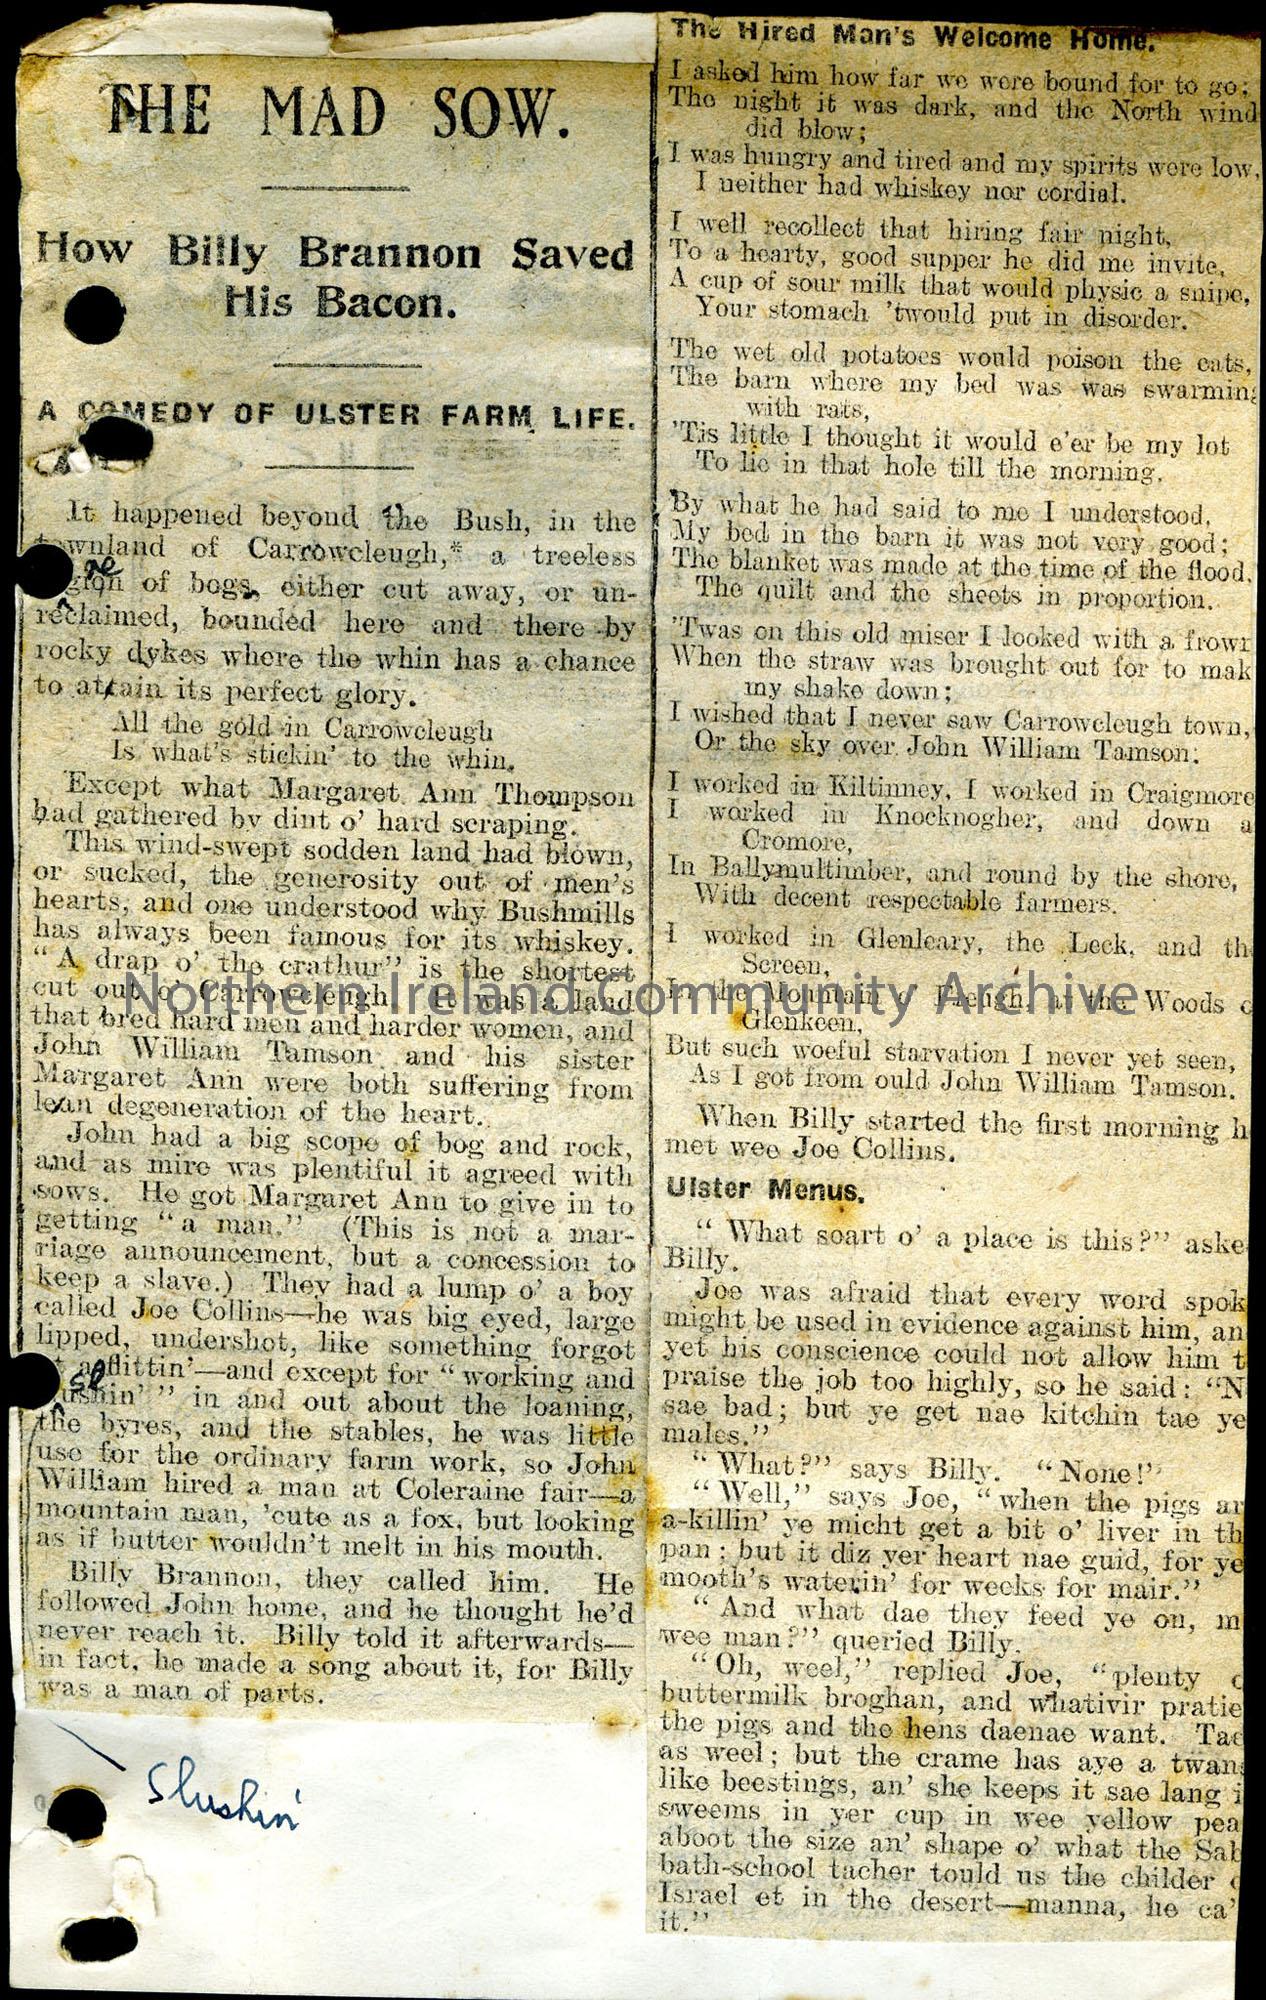 THE MAD SOW.
How Billy Brannon Saved
His Bacon.
A COMEDY OF ULSTER FARM LIFE.
It happened beyond the Bush, in the
townland of Carrowcleugh,* a treeless
region of bogs, either cut away, or un-
reclaimed, bounded here and there by
rocky dykes where the whin has a chance
to attain its perfect glory.
All the gold in Carrowcleugh
Is what's stickin' to the whin.
Except what Margaret Ann Thompson
had gathered by dint o' hard scraping.
This wind-swept sodden land had blown,
or sucked, the generosity out of men's
hearts, and one understood why Bushmills
has always been famous for its whiskey.
"A drap o' the crathur" is the shortest
cut out o' Carrowcleugh. It was a land
that bred hard men and harder women, and
John William Tamson and his sister
Margaret Ann were both suffering from
lean degeneration of the heart.
John had a big scope of bog and rock,
and as mire was plentiful it agreed with
sows. He got Margaret Ann to give in to
getting "a man." (This is not a mar-
riage announcement, but a concession to
keep a slave.) They had a lump o' a boy
called Joe Collins—he was big eyed, large
lipped, undershot, like something forgot
at a flittin'—and except for "working and
slushin'" in and out about the loaning,
the byres, and the stables, he was little
use for the ordinary farm work, so John
William hired a man at Coleraine fair—a
mountain man, 'cute as a fox, but looking
as if butter wouldn't melt in his mouth.
Billy Brannon, they called him. He
followed John home, and he thought he'd
never reach it. Billy told it afterwards—
in fact, he made a song about it, for Billy
was a man of parts.
Slushin'
The Hired Man's Welcome Home.
I asked him how far we were bound for to go;
The night it was dark, and the North wind
did blow;
I was hungry and tired and my spirits were low,
I neither had whiskey nor cordial.
I well recollect that hiring fair night,
To a hearty, good supper he did me invite,
A cup of sour milk that would physic a snipe,
Your stomach 'twould put in disorder.
The wet old potatoes would poison the cats,
The barn where my bed was was swarming
with rats,
'Tis little I thought it would e'er be my lot
To lie in that hole till the morning.
By what he had said to me I understood,
My bed in the barn it was not very good;
The blanket was made at the time of the flood,
The quilt and the sheets in proportion.
'Twas on this old miser I looked with a frown
When the straw was brought out for to mak
my shake down;
I wished that I never saw Carrowcleugh town,
Or the sky over John William Tamson.
I worked in Kiltinney, I worked in Craigmore
I worked in Knocknogher, and down a
Cromore,
In Ballymultimber, and round by the shore,
With decent respectable farmers.
I worked in Glenleary, the Leck, and th
Screen,
In the Mountain o' Fleugh, at the Woods o
Glenkeen,
But such woeful starvation I never yet seen,
As I got from ould John William Tamson.
When Billy started the first morning h
met wee Joe Collins.
Ulster Menus.
"What soart o' a place is this?" aske
Billy.
Joe was afraid that every word spok
might be used in evidence against him, an
yet his conscience could not allow him t
praise the job too highly, so he said: "N
sae bad; but ye get nae kitchin tae ye
males."
"What?" says Billy. "None!"
"Well," says Joe, "when the pigs ar
a-killin' ye micht get a bit o' liver in th
pan; but it diz yer heart nae guid, for ye
mooth's waterin' for weeks for mair."
"And what dae they feed ye on, m
wee man?" queried Billy.
"Oh, weel," replied Joe, "plenty o
buttermilk broghan, and whativir pratie
the pigs and the hens daenae want. Tae
as weel; but the crame has aye a twan
like beestings, an' she keeps it sae lang i
sweems in yer cup in wee yellow pea
aboot the size an' shape o' what the Sab
bath-school tacher tould us the childer o
Israel et in the desert—manna, he ca'
it."
Northern Ireland Community Archive